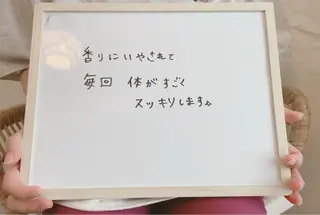 香りにいやされて
毎回 体がすごく
スッキリします。